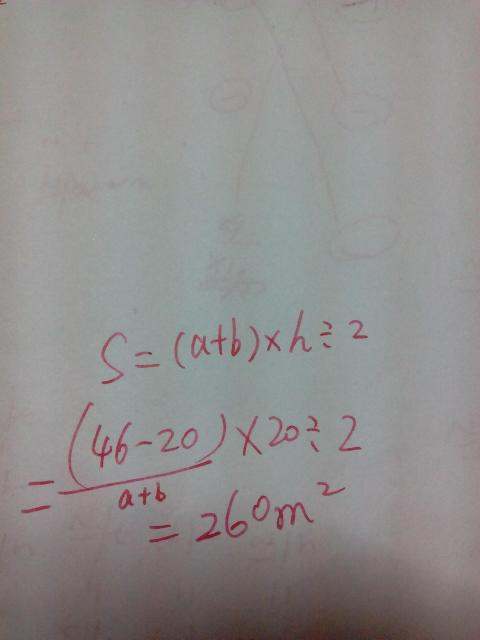 S=(a+b)×h÷2
=(46-20)×20÷2
a+b
=260m²